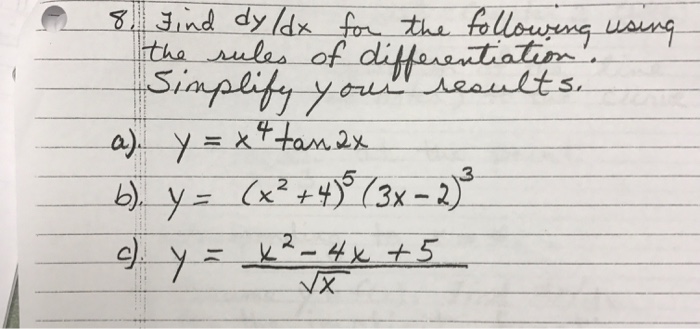 8. Find dy/dx for the following using
the rules of differentiation.
Simplify your results.
a). y = x⁴ tan 2x
b). y = (x² + 4)⁵ (3x - 2)³
c). y = x² - 4x + 5 / √x